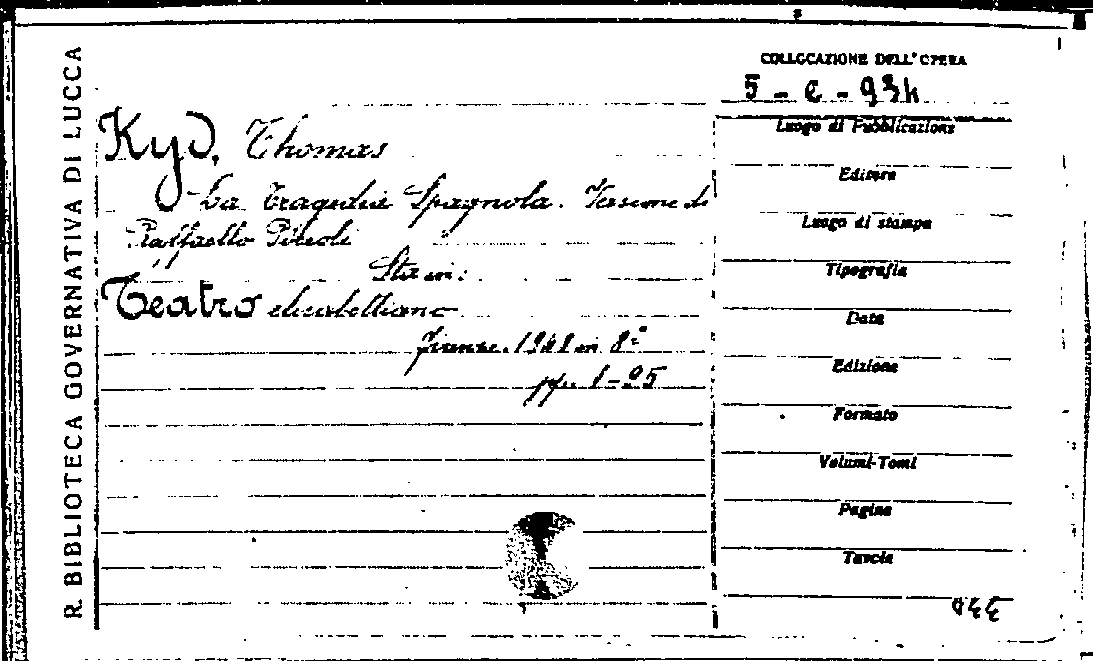 R. BIBLIOTECA GOVERNATIVA DI LUCCA
COLLOCAZIONE DELL'OPERA
5 - e - 934
Kyd, Thomas
La tragedia Spagnola. Versione di
Raffaello Piccoli
Sta in:
Teatro elisabettiano
Firenze. 1948 in 8°
pp. 1-95
Luogo di Pubblicazione
Editore
Luogo di stampa
Tipografia
Data
Edizione
Formato
Volumi-Tomi
Pagine
Tavole